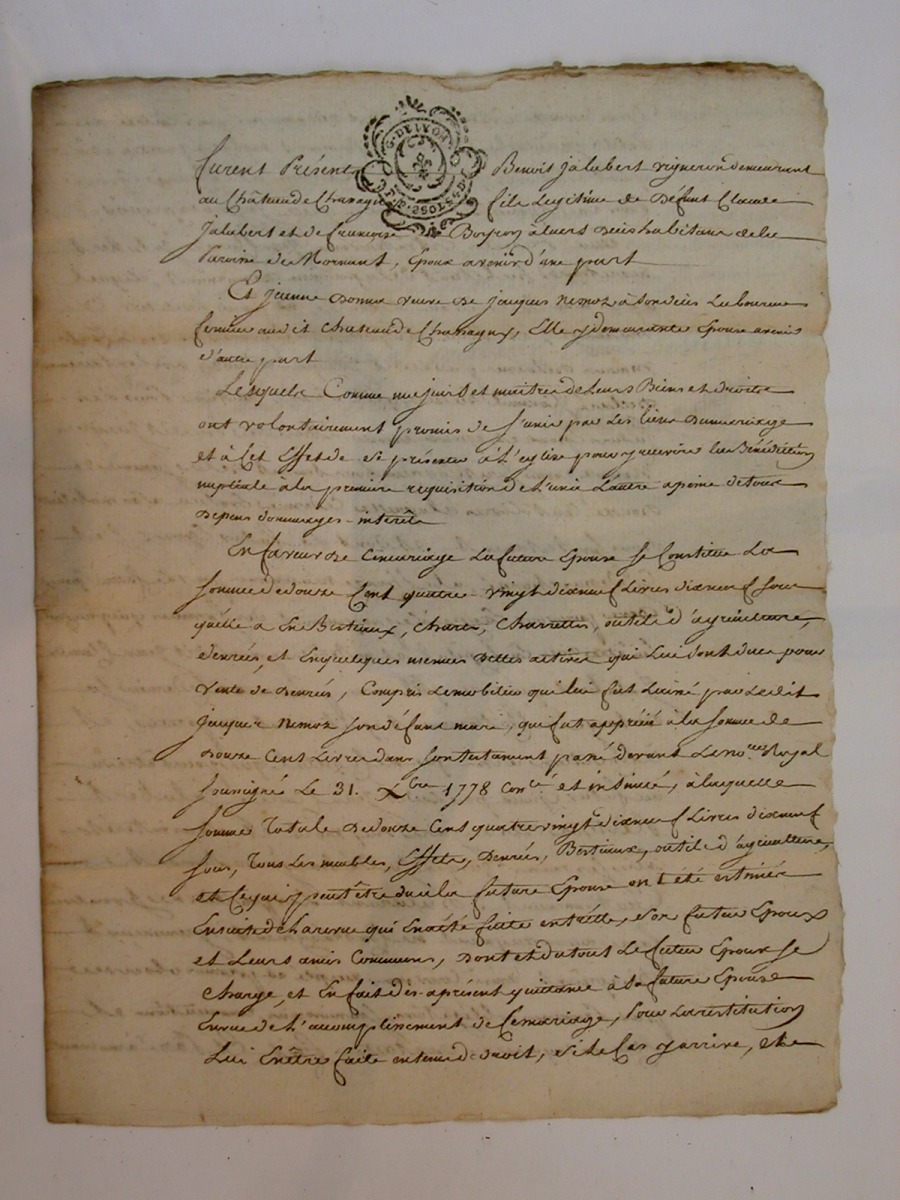 G. DE LYON
Furent Présents Benoît Jalabert vigneron demeurant
au Château de Chanagny fils Legitime de Défunt Claude
Jalabert et de francoise Boyron a leurs décès habitans de la
Paroisse de Mornant, Epoux avenir d'une part
Et jeanne veuve de jacques Nemoz à son décès Laboureur
fermier audit chateau de Chanagny, Elle y demeurante Epouse avenir
d'autre part
Lesquels Comme majeurs et maitres de Leurs Biens et droits
ont volontairement promis de s'unir par les liens du mariage
et à Cet Effet de se présenter à l'eglise pour y recevoir la Bénédiction
nuptiale à la premiere requisition de L'un à L'autre a peine de tous
Depens dommages-interêts
En faveur de Ce mariage La future Epouse se Constitue La
somme de douze Cent quatre-vingt dixneuf Livres dixneuf sous
qu'elle a En Bestiaux, Chars, Charrettes, outils d'agriculture,
denrées, et En quelques menues Dettes actives qui Lui sont dues pour
vente de Denrées, Compris Le mobilier qui lui fut par Ledit
jacques Nemoz son défunt mari, qui fut apprécié à la somme de
Douze Cent Livres dans son testament passé devant Le no.re Royal
soussigné Le 31. Xbre 1778 Con.lé et insinué, à laquelle
somme Totale de douze Cent quatre vingt dixneuf Livres dixneuf
sous, Tous Les meubles, Effets, Denrées, Bestiaux, outils d'agriculture,
et Ce qui peut être du à la future Epouse ont été estimés
Ensuite de qui En a été faite entr'Elle, son futur Epoux
et Leurs amis Communs, Dont et du tout Le futur Epoux se
Charge, et En fait dès-aprésent quittance à sa future Epouse
En vue de L'accomplissement de Ce mariage, sous La restitution
Lui En être faite en tems de droit, si le Cas y arrive, et a